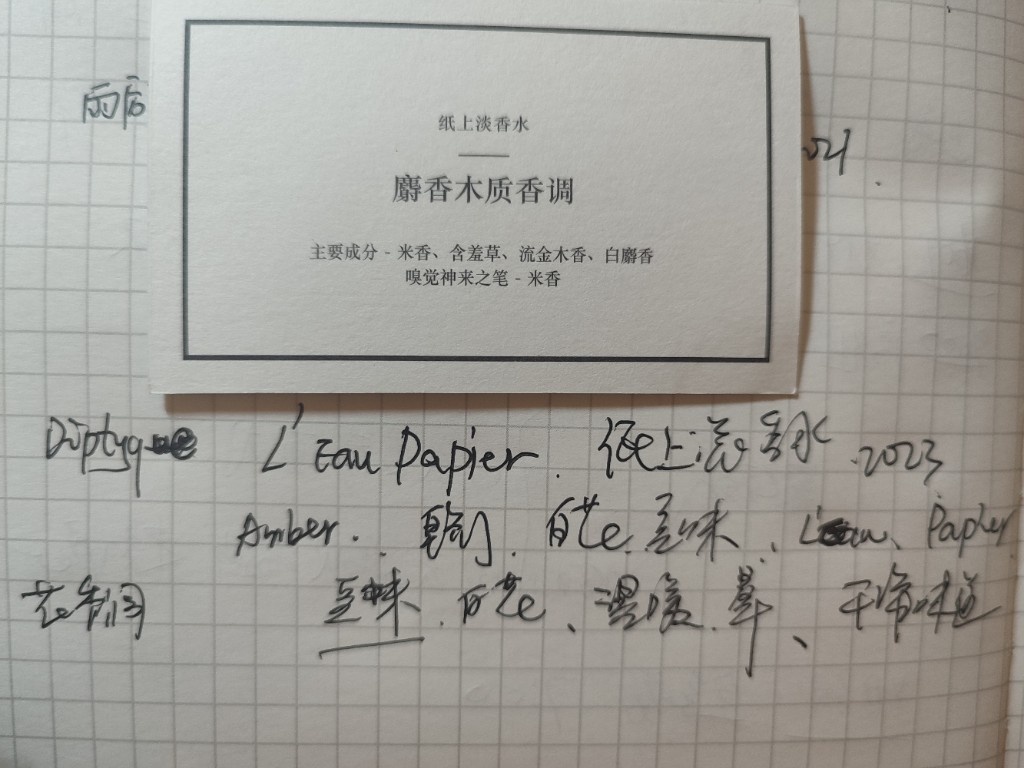 雨后
纸上淡香水
麝香木质香调
主要成分 - 米香、含羞草、流金木香、白麝香
嗅觉神来之笔 - 米香
Diptyque L'Eau Papier. 纸上淡香水. 2023
Amber. 白花 豆味、L'Eau、Papier
花香调 豆味. 白花、温暖. 干净味道